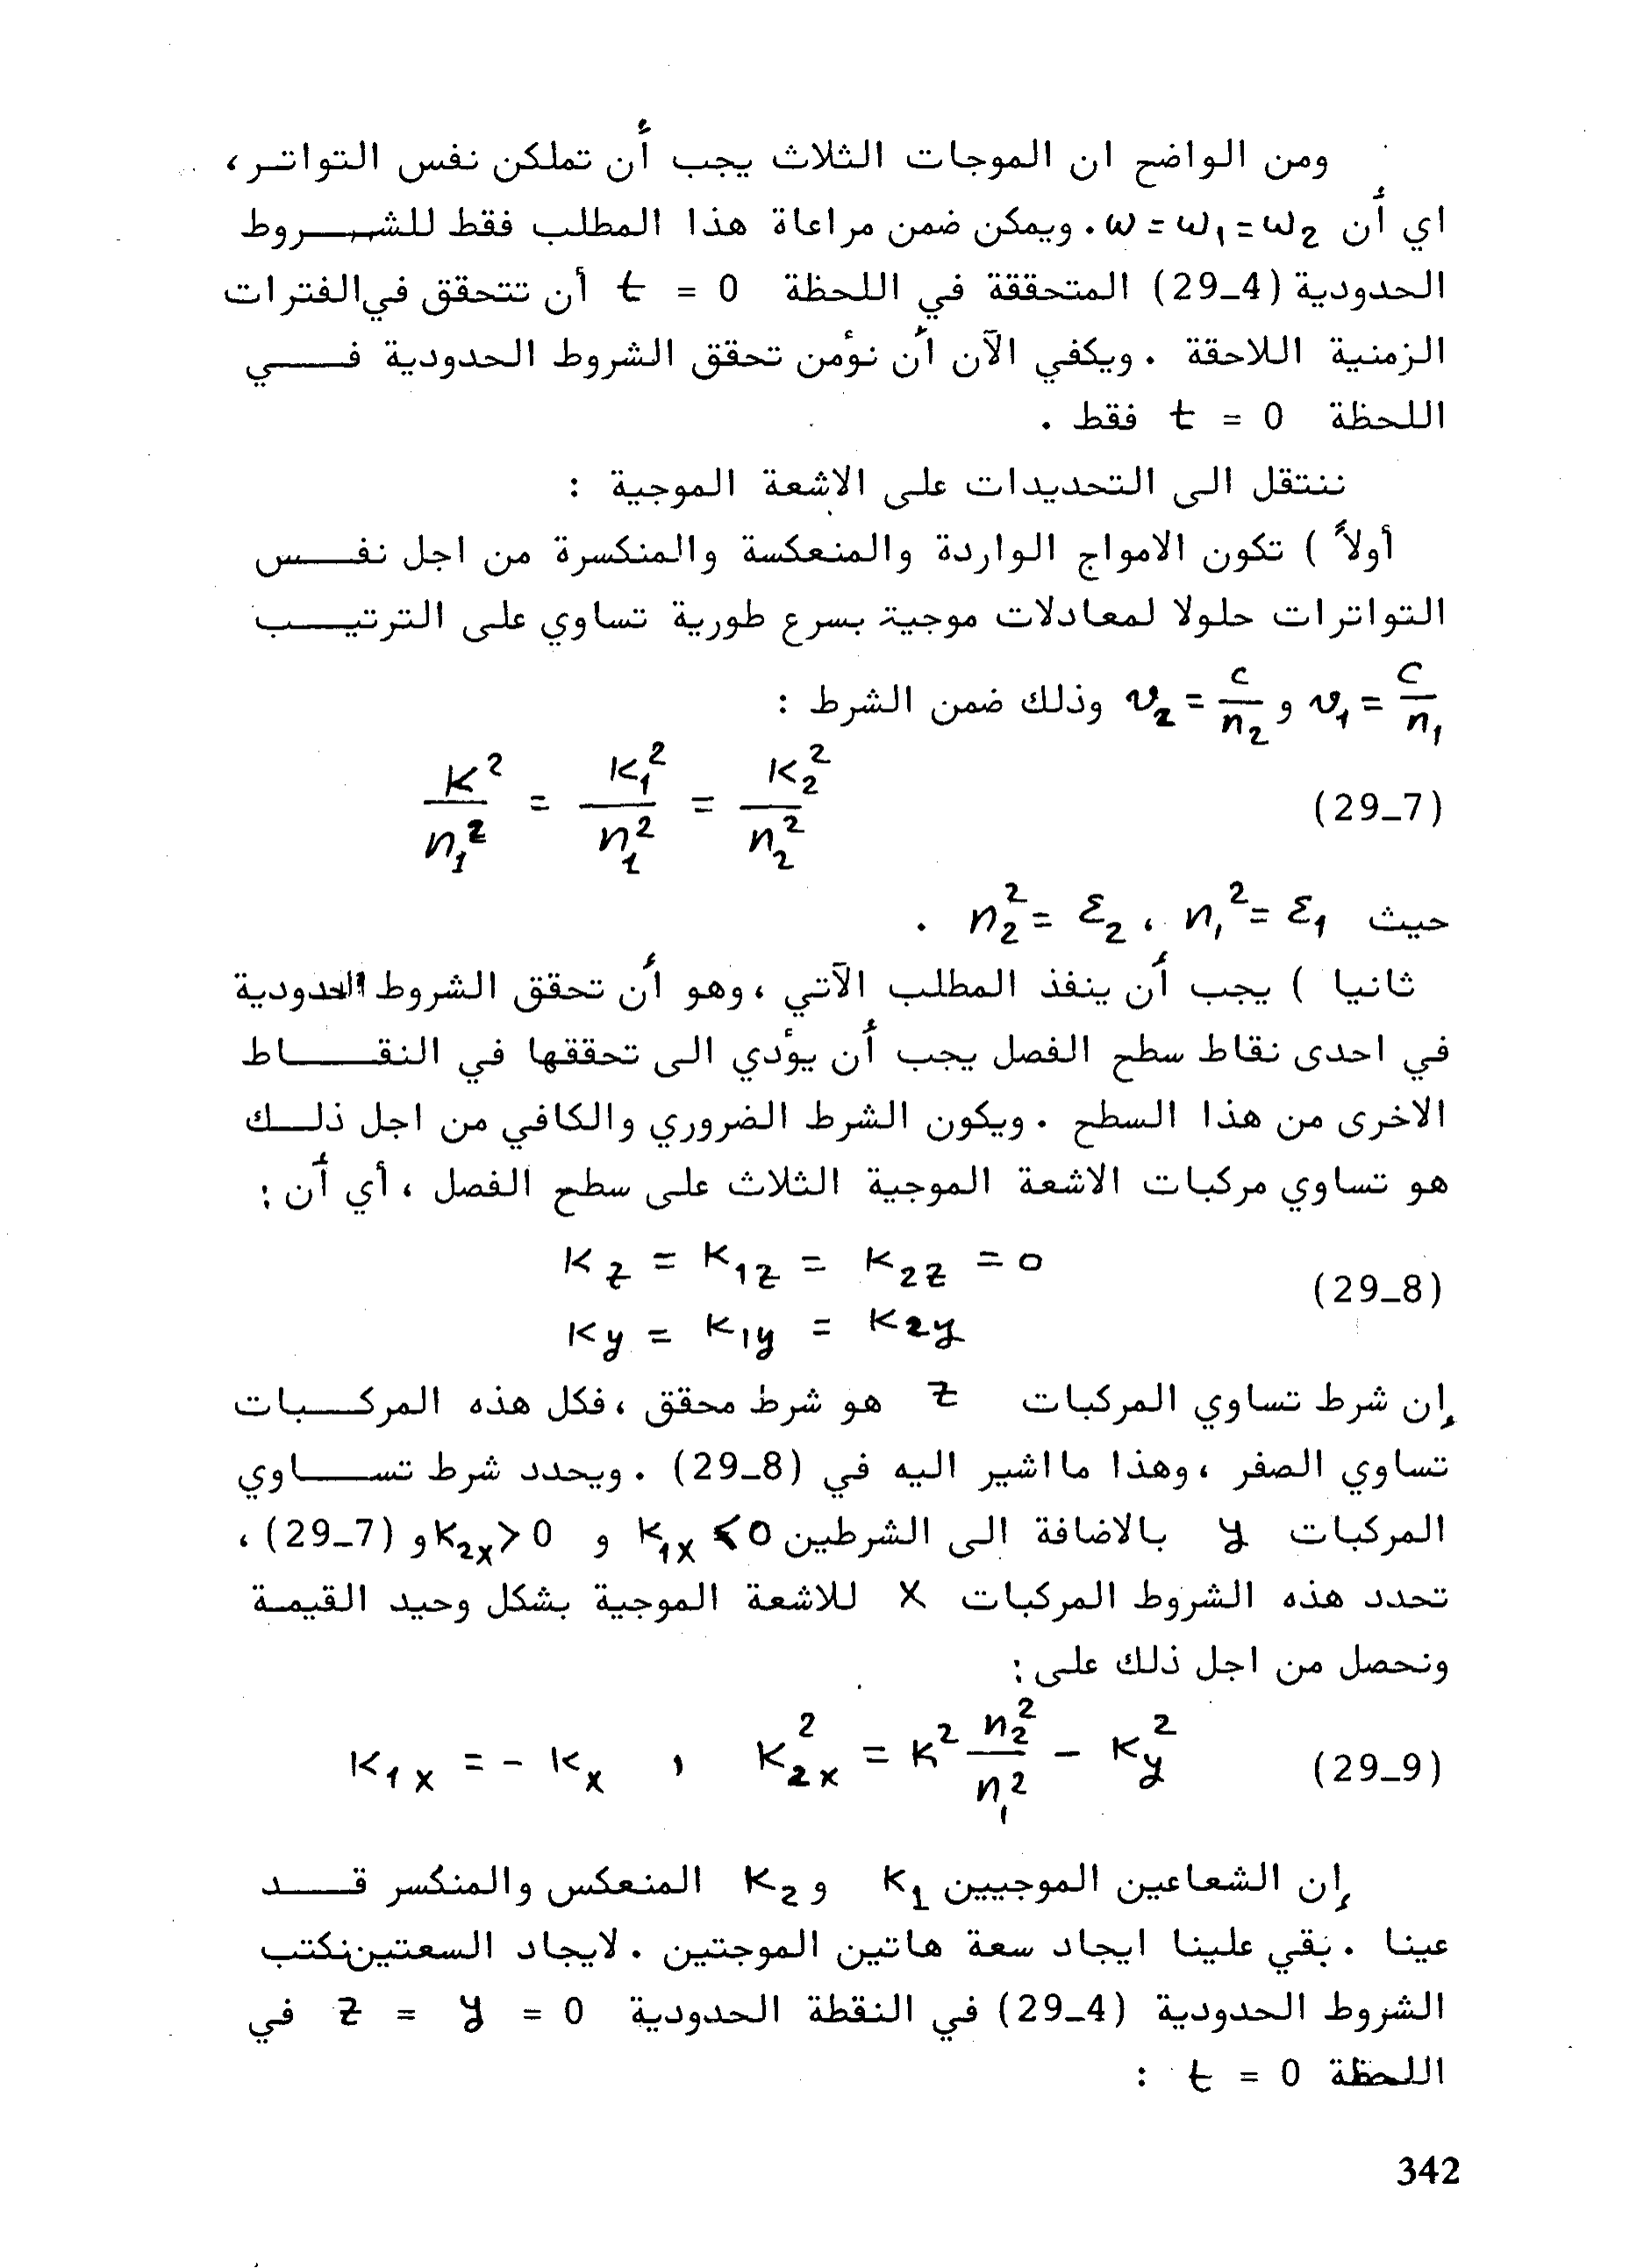 ومن الواضح ان الموجات الثلاث يجب أن تملكن نفس التواتر،
اي أن ω = ω₁ = ω₂ . ويمكن ضمن مراعاة هذا المطلب فقط للشروط
الحدودية (29_4) المتحققة في اللحظة t = 0 أن تتحقق في الفترات
الزمنية اللاحقة . ويكفي الآن أن نؤمن تحقق الشروط الحدودية في
اللحظة t = 0 فقط .
ننتقل الى التحديدات على الاشعة الموجية :
أولاً ) تكون الامواج الواردة والمنعكسة والمنكسرة من اجل نفس
التواترات حلولا لمعادلات موجية بسرع طورية تساوي على الترتيب
v₁ = c/n₁ و v₂ = c/n₂ وذلك ضمن الشرط :
K²/n₁² = K₁²/n₁² = K₂²/n₂² (29_7)
حيث n₁² = ε₁ ، n₂² = ε₂ .
ثانيا ) يجب أن ينفذ المطلب الآتي ، وهو أن تحقق الشروط الحدودية
في احدى نقاط سطح الفصل يجب أن يؤدي الى تحققها في النقاط
الاخرى من هذا السطح . ويكون الشرط الضروري والكافي من اجل ذلك
هو تساوي مركبات الاشعة الموجية الثلاث على سطح الفصل ، أي أن :
K_z = K_1z = K_2z = 0
(29_8)
K_y = K_1y = K_2y
إن شرط تساوي المركبات z هو شرط محقق ، فكل هذه المركبات
تساوي الصفر ، وهذا مااشير اليه في (29_8) . ويحدد شرط تساوي
المركبات y بالاضافة الى الشرطين K_1x ⩽ 0 و K_2x > 0 و (29_7) ،
تحدد هذه الشروط المركبات X للاشعة الموجية بشكل وحيد القيمة
ونحصل من اجل ذلك على :
K_1x = - K_x , K_2x² = K² n₂²/n₁² - K_y² (29_9)
إن الشعاعين الموجيين K₁ و K₂ المنعكس والمنكسر قد
عينا . بقي علينا ايجاد سعة هاتين الموجتين . لايجاد السعتين نكتب
الشروط الحدودية (29_4) في النقطة الحدودية z = y = 0 في
اللحظة t = 0 :
342